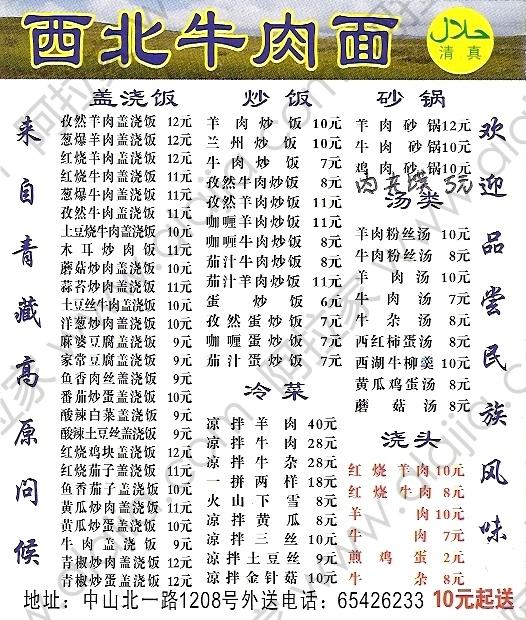 西北牛肉面
حلال
清真
来自青藏高原问候
欢迎品尝民族风味
盖浇饭
孜然羊肉盖浇饭 12元
葱爆羊肉盖浇饭 12元
红烧羊肉盖浇饭 12元
红烧牛肉盖浇饭 11元
葱爆牛肉盖浇饭 11元
孜然牛肉盖浇饭 11元
土豆烧牛肉盖浇饭 10元
木耳炒肉饭 11元
蘑菇炒肉盖浇饭 10元
蒜苔炒肉盖浇饭 10元
土豆丝牛肉盖浇饭 10元
洋葱炒肉盖浇饭 10元
麻婆豆腐盖浇饭 9元
家常豆腐盖浇饭 9元
鱼香肉丝盖浇饭 9元
番茄炒蛋盖浇饭 10元
酸辣白菜盖浇饭 9元
酸辣土豆丝盖浇饭 9元
红烧鸡块盖浇饭 12元
红烧茄子盖浇饭 11元
鱼香茄子盖浇饭 11元
黄瓜炒肉盖浇饭 11元
黄瓜炒蛋盖浇饭 10元
牛肉盖浇饭 9元
青椒炒蛋盖浇饭 11元
青椒炒蛋盖浇饭 12元
炒饭
羊肉炒饭 10元
兰州炒饭 10元
牛肉炒饭 7元
孜然牛肉炒饭 8元
孜然羊肉炒饭 11元
咖喱羊肉炒饭 11元
咖喱牛肉炒饭 8元
茄汁牛肉炒饭 8元
茄汁羊肉炒饭 11元
蛋炒饭 6元
孜然蛋炒饭 7元
咖喱蛋炒饭 7元
茄汁蛋炒饭 7元
冷菜
凉拌羊肉 40元
凉拌牛肉 28元
凉拌牛杂 28元
一拼两样 18元
火山下雪 8元
凉拌黄瓜 8元
凉拌三丝 10元
凉拌土豆丝 9元
凉拌金针菇 10元
砂锅
羊肉砂锅 12元
牛肉砂锅 10元
鸡肉砂锅 10元
肉夹馍 5元
汤类
羊肉粉丝汤 10元
牛肉粉丝汤 8元
羊肉汤 10元
牛肉汤 7元
牛杂汤 8元
西红柿蛋汤 8元
西湖牛柳羹 10元
黄瓜鸡蛋汤 8元
蘑菇汤 8元
浇头
红烧羊肉 10元
红烧牛肉 8元
羊肉 10元
牛肉 7元
煎鸡蛋 2元
牛杂 8元
地址：中山北一路1208号外送电话：65426233 10元起送
www.alajia.com
阿拉家